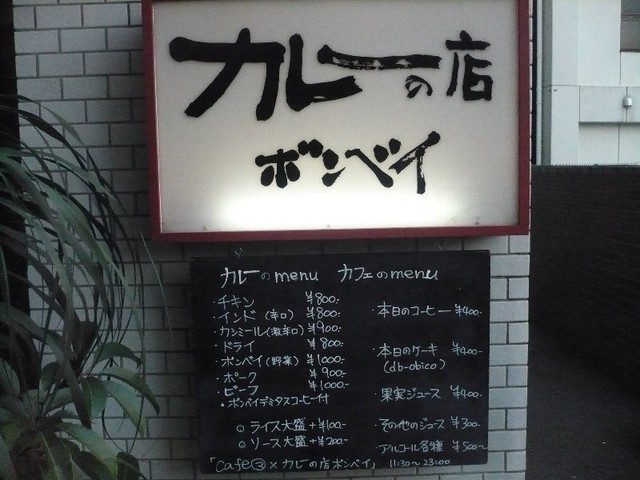 カレーの店
ボンベイ
カレーのmenu カフェのmenu
・チキン ¥800-
・インド(辛口) ¥800-
・カシミール(激辛口) ¥900-
・ドライ ¥800-
・ボンベイ(野菜) ¥1000-
・ポーク ¥900-
・ビーフ ¥1000-
・ボンベイデミタスコーヒー付
○ ライス大盛 +¥100-
○ ソース大盛 +¥200-
・本日のコーヒー ¥400-
・本日のケーキ ¥400-
(db-obico)
・果実ジュース ¥400-
・その他のジュース ¥300-
・アルコール各種 ¥500~
「Cafe × カレーの店ボンベイ」 11:30~23:00